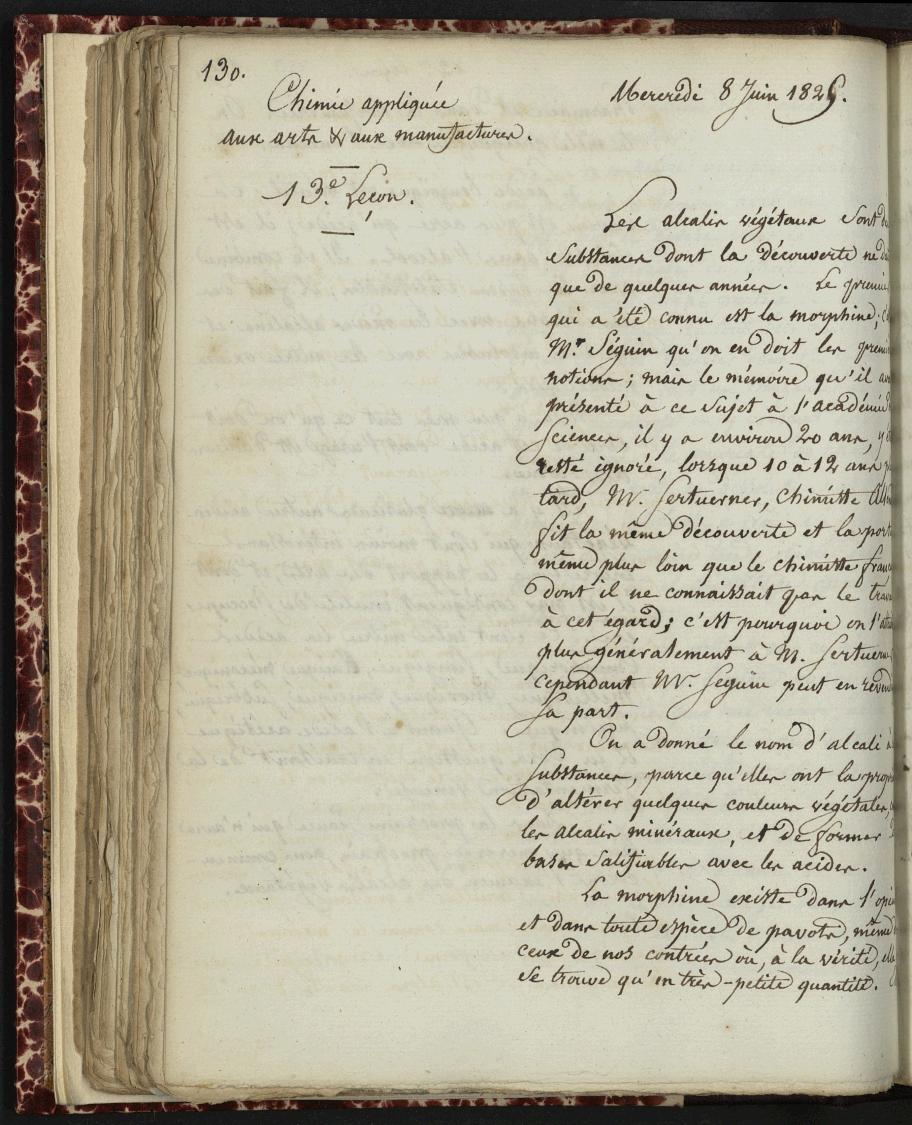 130.
Chimie appliquée
aux arts & aux manufactures.
Mercredi 8 Juin 1825.
13.e Leçon.
Les alcalis végétaux sont
substances dont la découverte ne
que de quelques années. Le premier
qui a été connu est la morphine;
Mr. Séguin qu'on en doit les
notions; mais le mémoire qu'il
présenté à ce sujet à l'académie
sciences, il y a environ 20 ans,
resté ignoré, lorsque 10 à 12 ans
tard, Mr. Sertuerner, chimiste
fit la même découverte et la
même plus loin que le chimiste
dont il ne connaissait pas le
à cet égard; c'est pourquoi on
plus généralement à M.
cependant Mr. Séguin peut en
sa part.
On a donné le nom d'alcali
substances, parce qu'elles ont la
d'altérer quelques couleurs végétales,
les alcalis minéraux, et de former
bases salifiables avec les acides.
La morphine existe dans
et dans toute espèce de pavots, même
ceux de nos contrées où, à la vérité,
se trouve qu'en très-petite quantité.